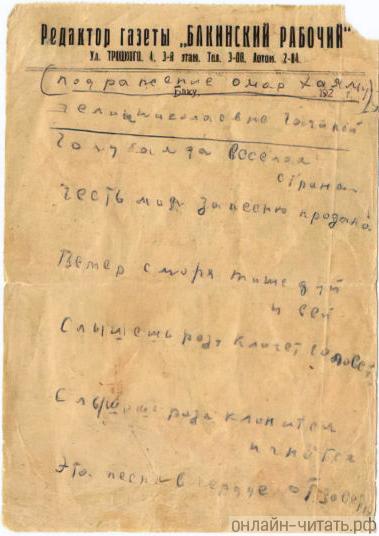 Редактор газеты „БАКИНСКИЙ РАБОЧИЙ"
Ул. ТРОЦКОГО, 4, 3-й этаж. Тел. 3-08. Автом. 2-04.
(подражание омар хаяму)
Баку, 192 г.
Гелии Николаевне
Голубая да веселая
страна
Честь моя за песню продана
Ветер с моря тише дуй
и вей
Слышешь розу кличет соловей
Слышешь роза клонится
и гнётся
Эта песня в сердце отзовется
онлайн-читать.рф